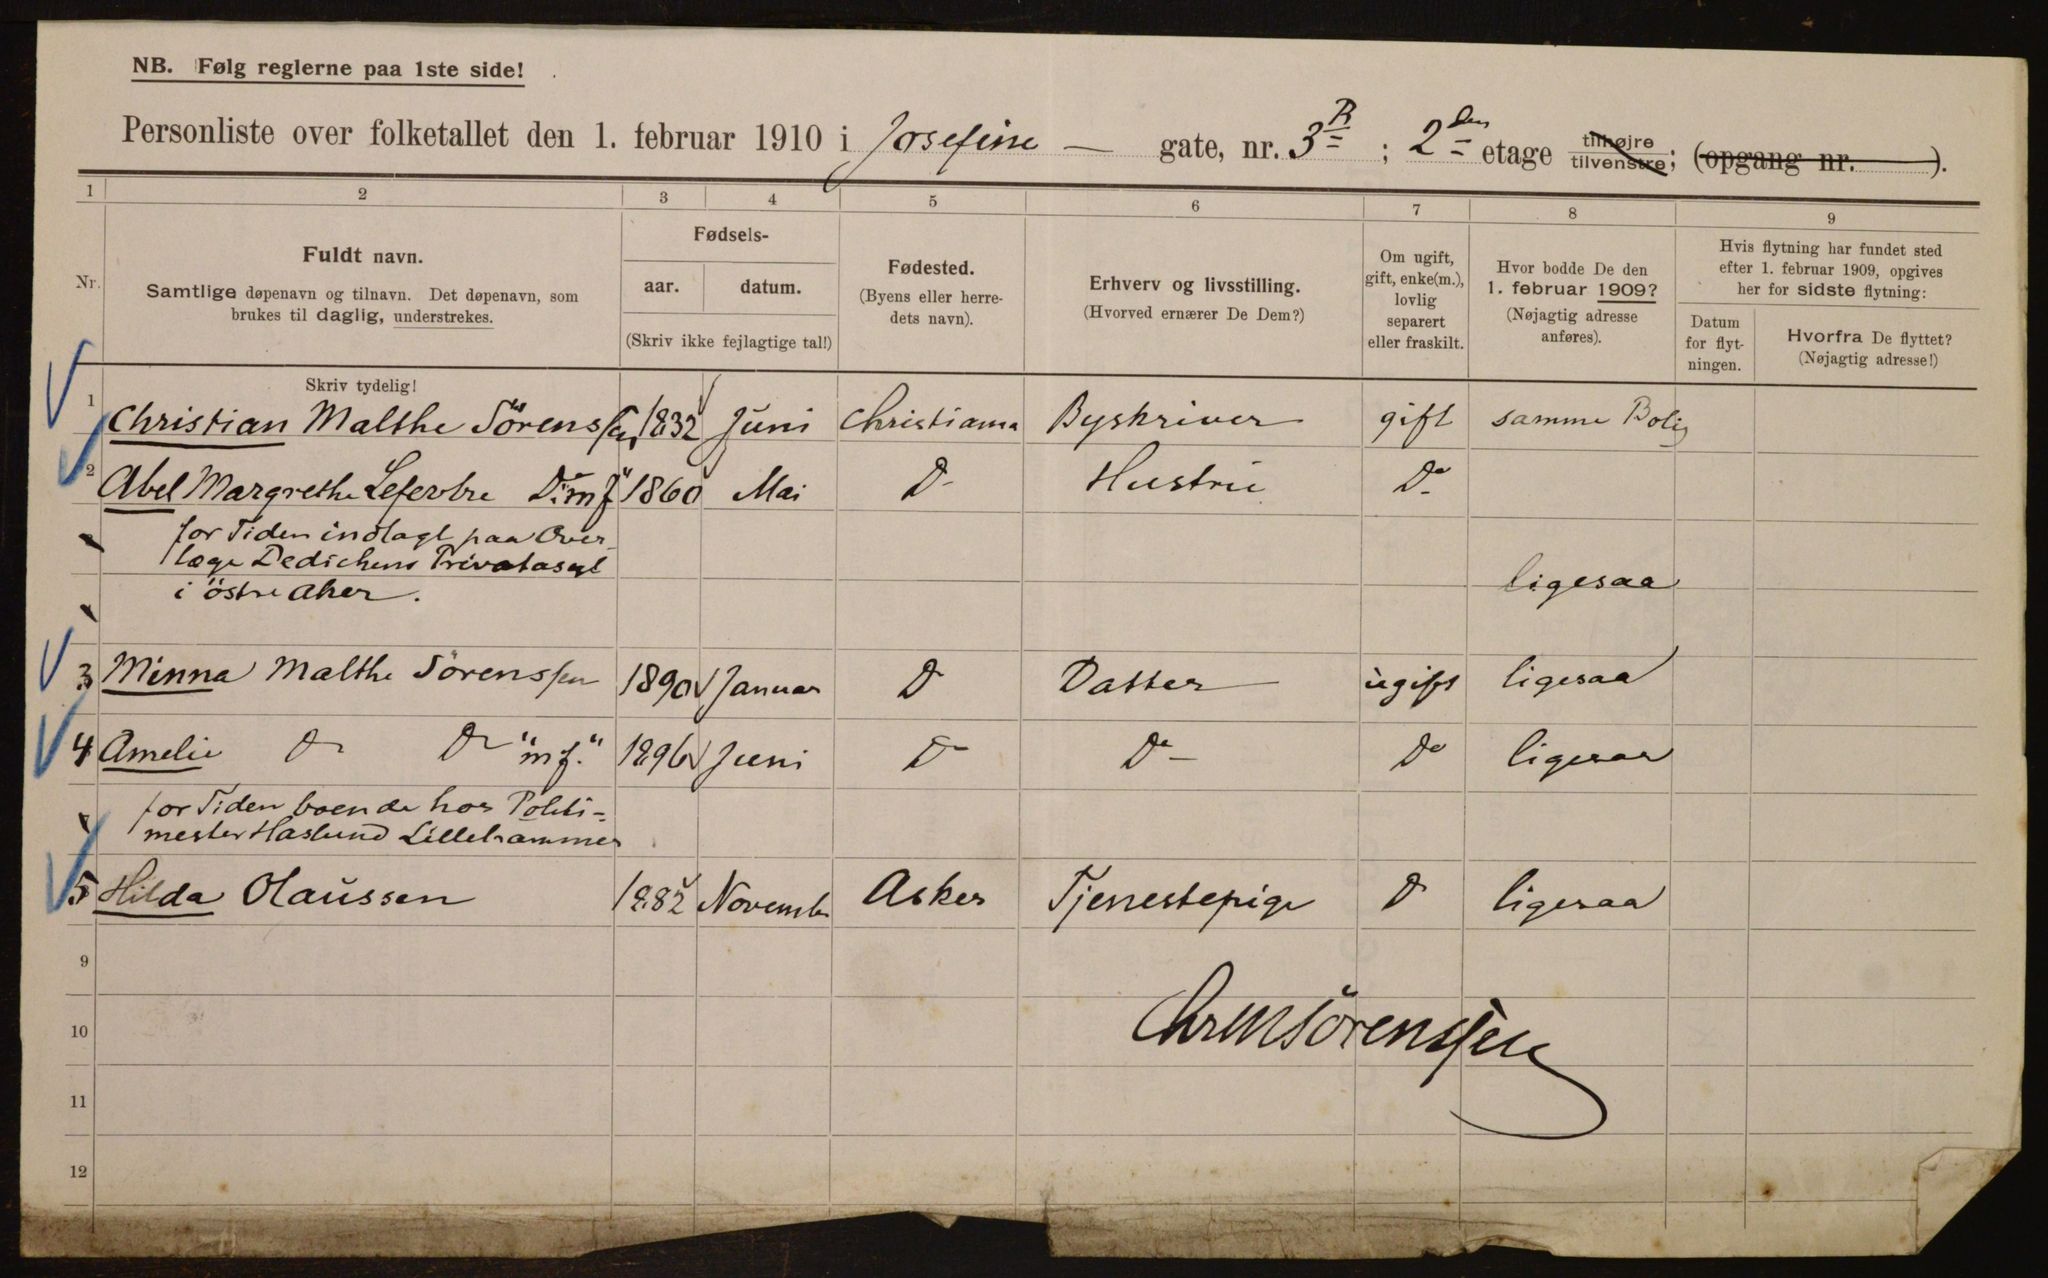 NB. Følg reglerne paa 1ste side!
Personliste over folketallet den 1. februar 1910 i Josefine — gate, nr. 3 B ; 2den etage tilhøjre tilvenstre; (opgang nr. ).
1 2 3 4 5 6 7 8 9
Nr.
Fuldt navn.
Samtlige døpenavn og tilnavn. Det døpenavn, som
brukes til daglig, understrekes.
Fødsels-
aar. datum.
(Skriv ikke fejlagtige tal!)
Fødested.
(Byens eller herre-
dets navn).
Erhverv og livsstilling.
(Hvorved ernærer De Dem?)
Om ugift,
gift, enke(m.),
lovlig
separert
eller fraskilt.
Hvor bodde De den
1. februar 1909?
(Nøjagtig adresse
anføres).
Hvis flytning har fundet sted
efter 1. februar 1909, opgives
her for sidste flytning:
Datum
for flyt-
ningen.
Hvorfra De flyttet?
(Nøjagtig adresse!)
Skriv tydelig!
1 Christian Malthe Sörenssen 1832 Juni Christiania Byskriver gift samme Bolig
2 Abel Margrethe Lefevbre Do "mf" 1860 Mai Do Hustru Do
for Tiden indlagt paa Over-
læge Dedichens Privatasyl
i östre Aker. ligesaa
3 Minna Malthe Sörenssen 1890 Januar Do Datter ugift ligesaa
4 Amelie Do Do "mf." 1896 Juni Do Do Do ligesaa
for Tiden boende hos Politi=
mester Haslund Lillehammer
5 Hilda Olaussen 1882 November Asker Tjenestepige Do ligesaa
9
10 ChrMSörenssen
11
12